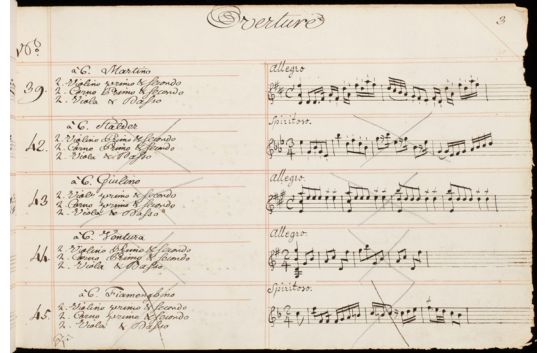 Overture
3
N.o
39.
à 6. Martino
2. Violino primo & secondo
2. Corno primo & secondo
2. Viola & Basso
Allegro.
42.
à 6. Stalder
2. Violino Primo & Secondo
2. Corno Primo & Secondo
2. Viola & Basso
Spiritoso.
43
à 6. Giulino
2. Viol: primo & secondo
2. Corno primo & secondo
2. Viola & Basso
Allegro.
44.
à 6. Ventura
2. Violino Primo & Secondo
2. Corno Primo & Secondo
2. Viola & Basso
Allegro.
45.
à 6. Fiamenghino
2. Violino primo & secondo
2. Corno primo & secondo
2. Viola & Basso
Spiritoso.